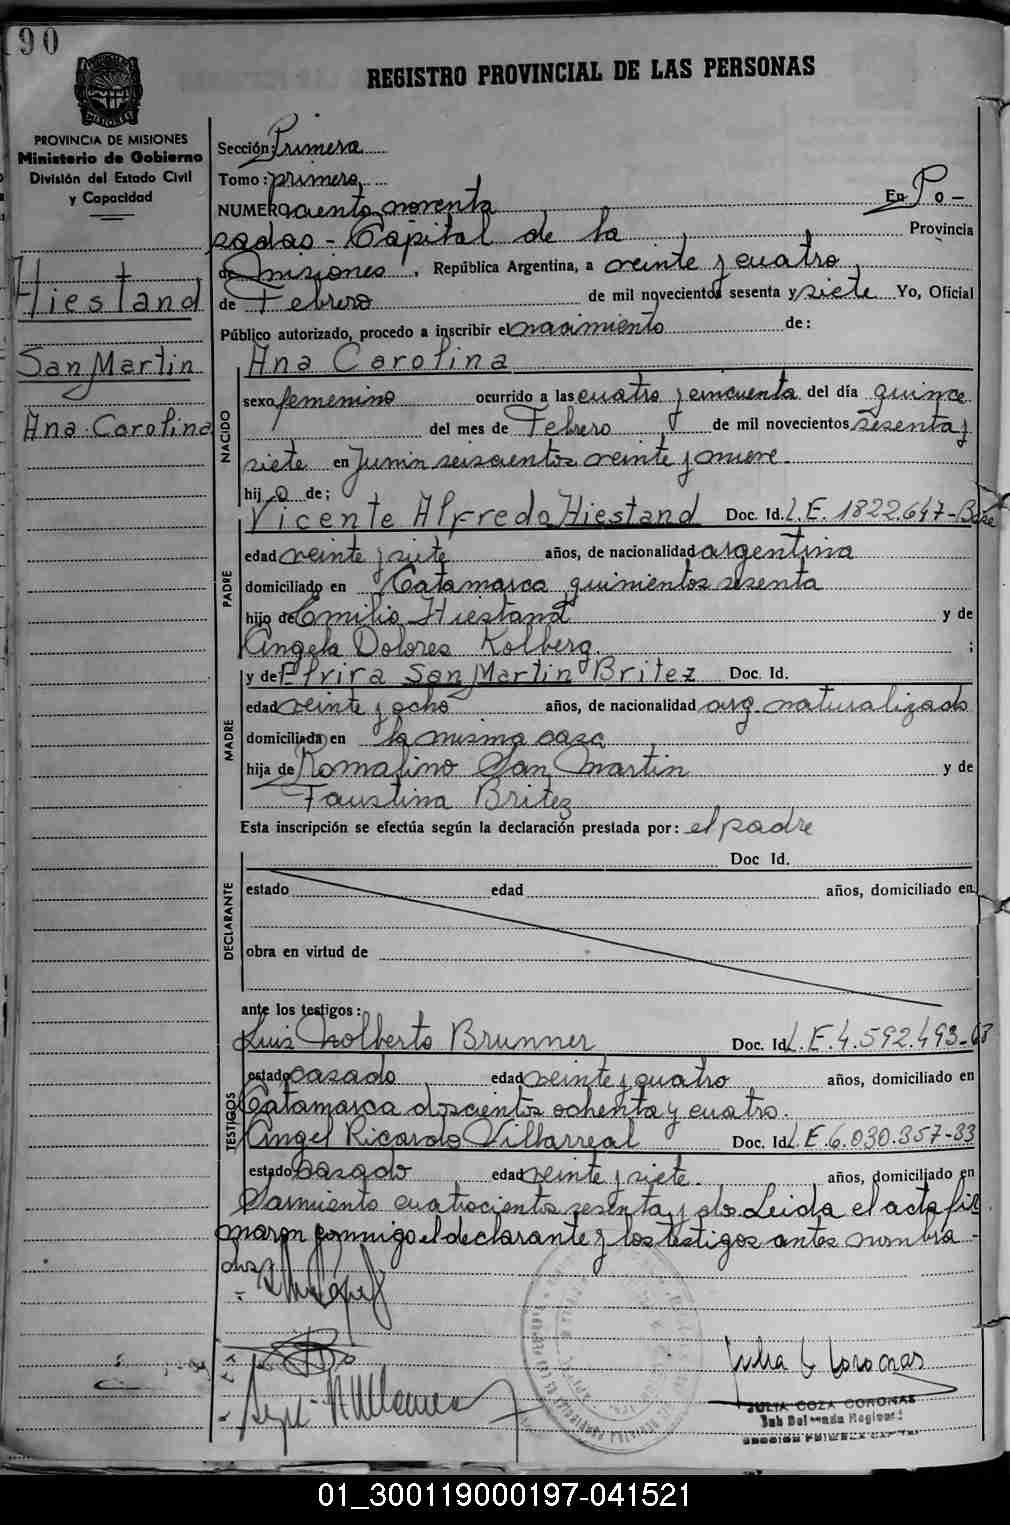 190
REGISTRO PROVINCIAL DE LAS PERSONAS
PROVINCIA DE MISIONES
Ministerio de Gobierno
División del Estado Civil
y Capacidad
Hiestand
San Martin
Ana Carolina
Sección: Primera
Tomo: primero
NUMERO ciento noventa En Po-
sadas - Capital de la Provincia
de Misiones, República Argentina, a veinte y cuatro
de Febrero de mil novecientos sesenta y siete Yo, Oficial
Público autorizado, procedo a inscribir el nacimiento de:
Ana Carolina
NACIDO
sexo femenino ocurrido a las cuatro y cincuenta del día quince
del mes de Febrero de mil novecientos sesenta y
siete en Junin seiscientos veinte y nueve
hij a de;
Vicente Alfredo Hiestand Doc. Id. L.E. 1.822.647-
PADRE
edad veinte y siete años, de nacionalidad argentina
domiciliado en Catamarca quinientos sesenta
hijo de Emilio Hiestand y de
Angela Dolores Kolberg. ;
y de Elvira San Martin Britez Doc. Id.
MADRE
edad veinte y ocho años, de nacionalidad arg. naturalizada
domiciliada en la misma casa
hija de Romalino San Martin y de
Faustina Britez
Esta inscripción se efectúa según la declaración prestada por: el padre
Doc Id.
DECLARANTE
estado edad años, domiciliado en
obra en virtud de
ante los testigos:
Luis Adalberto Brunner Doc. Id. L.E. 4.592.493-
TESTIGOS
estado casado edad veinte y cuatro años, domiciliado en
Catamarca doscientos ochenta y cuatro.
Angel Ricardo Villarreal Doc. Id. L.E. 6.030.357-33
estado casado edad veinte y siete. años, domiciliado en
Sarmiento cuatrocientos sesenta y dos. Leida el acta fir
maron conmigo el declarante y los testigos antes nombra-
dos
Julia C Coronas
JULIA COZA CORONAS
Sub Delegada Regional
SECCION PRIMERA CAPITAL
01_300119000197-041521